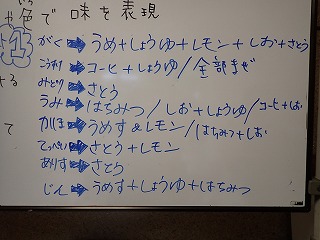 や色で味を表現
がく➡うめ+しょうゆ+レモン+しお+さとう
こうき➡コーヒー+しょうゆ/全部まぜ
みどり➡さとう
うみ➡はちみつ/しお+しょうゆ/コーヒー+しお
かしま➡うめす&レモン/はちみつ+しお
てっぺい➡さとう+レモン
ありす➡さとう
じん➡うめす+しょうゆ+はちみつ
て